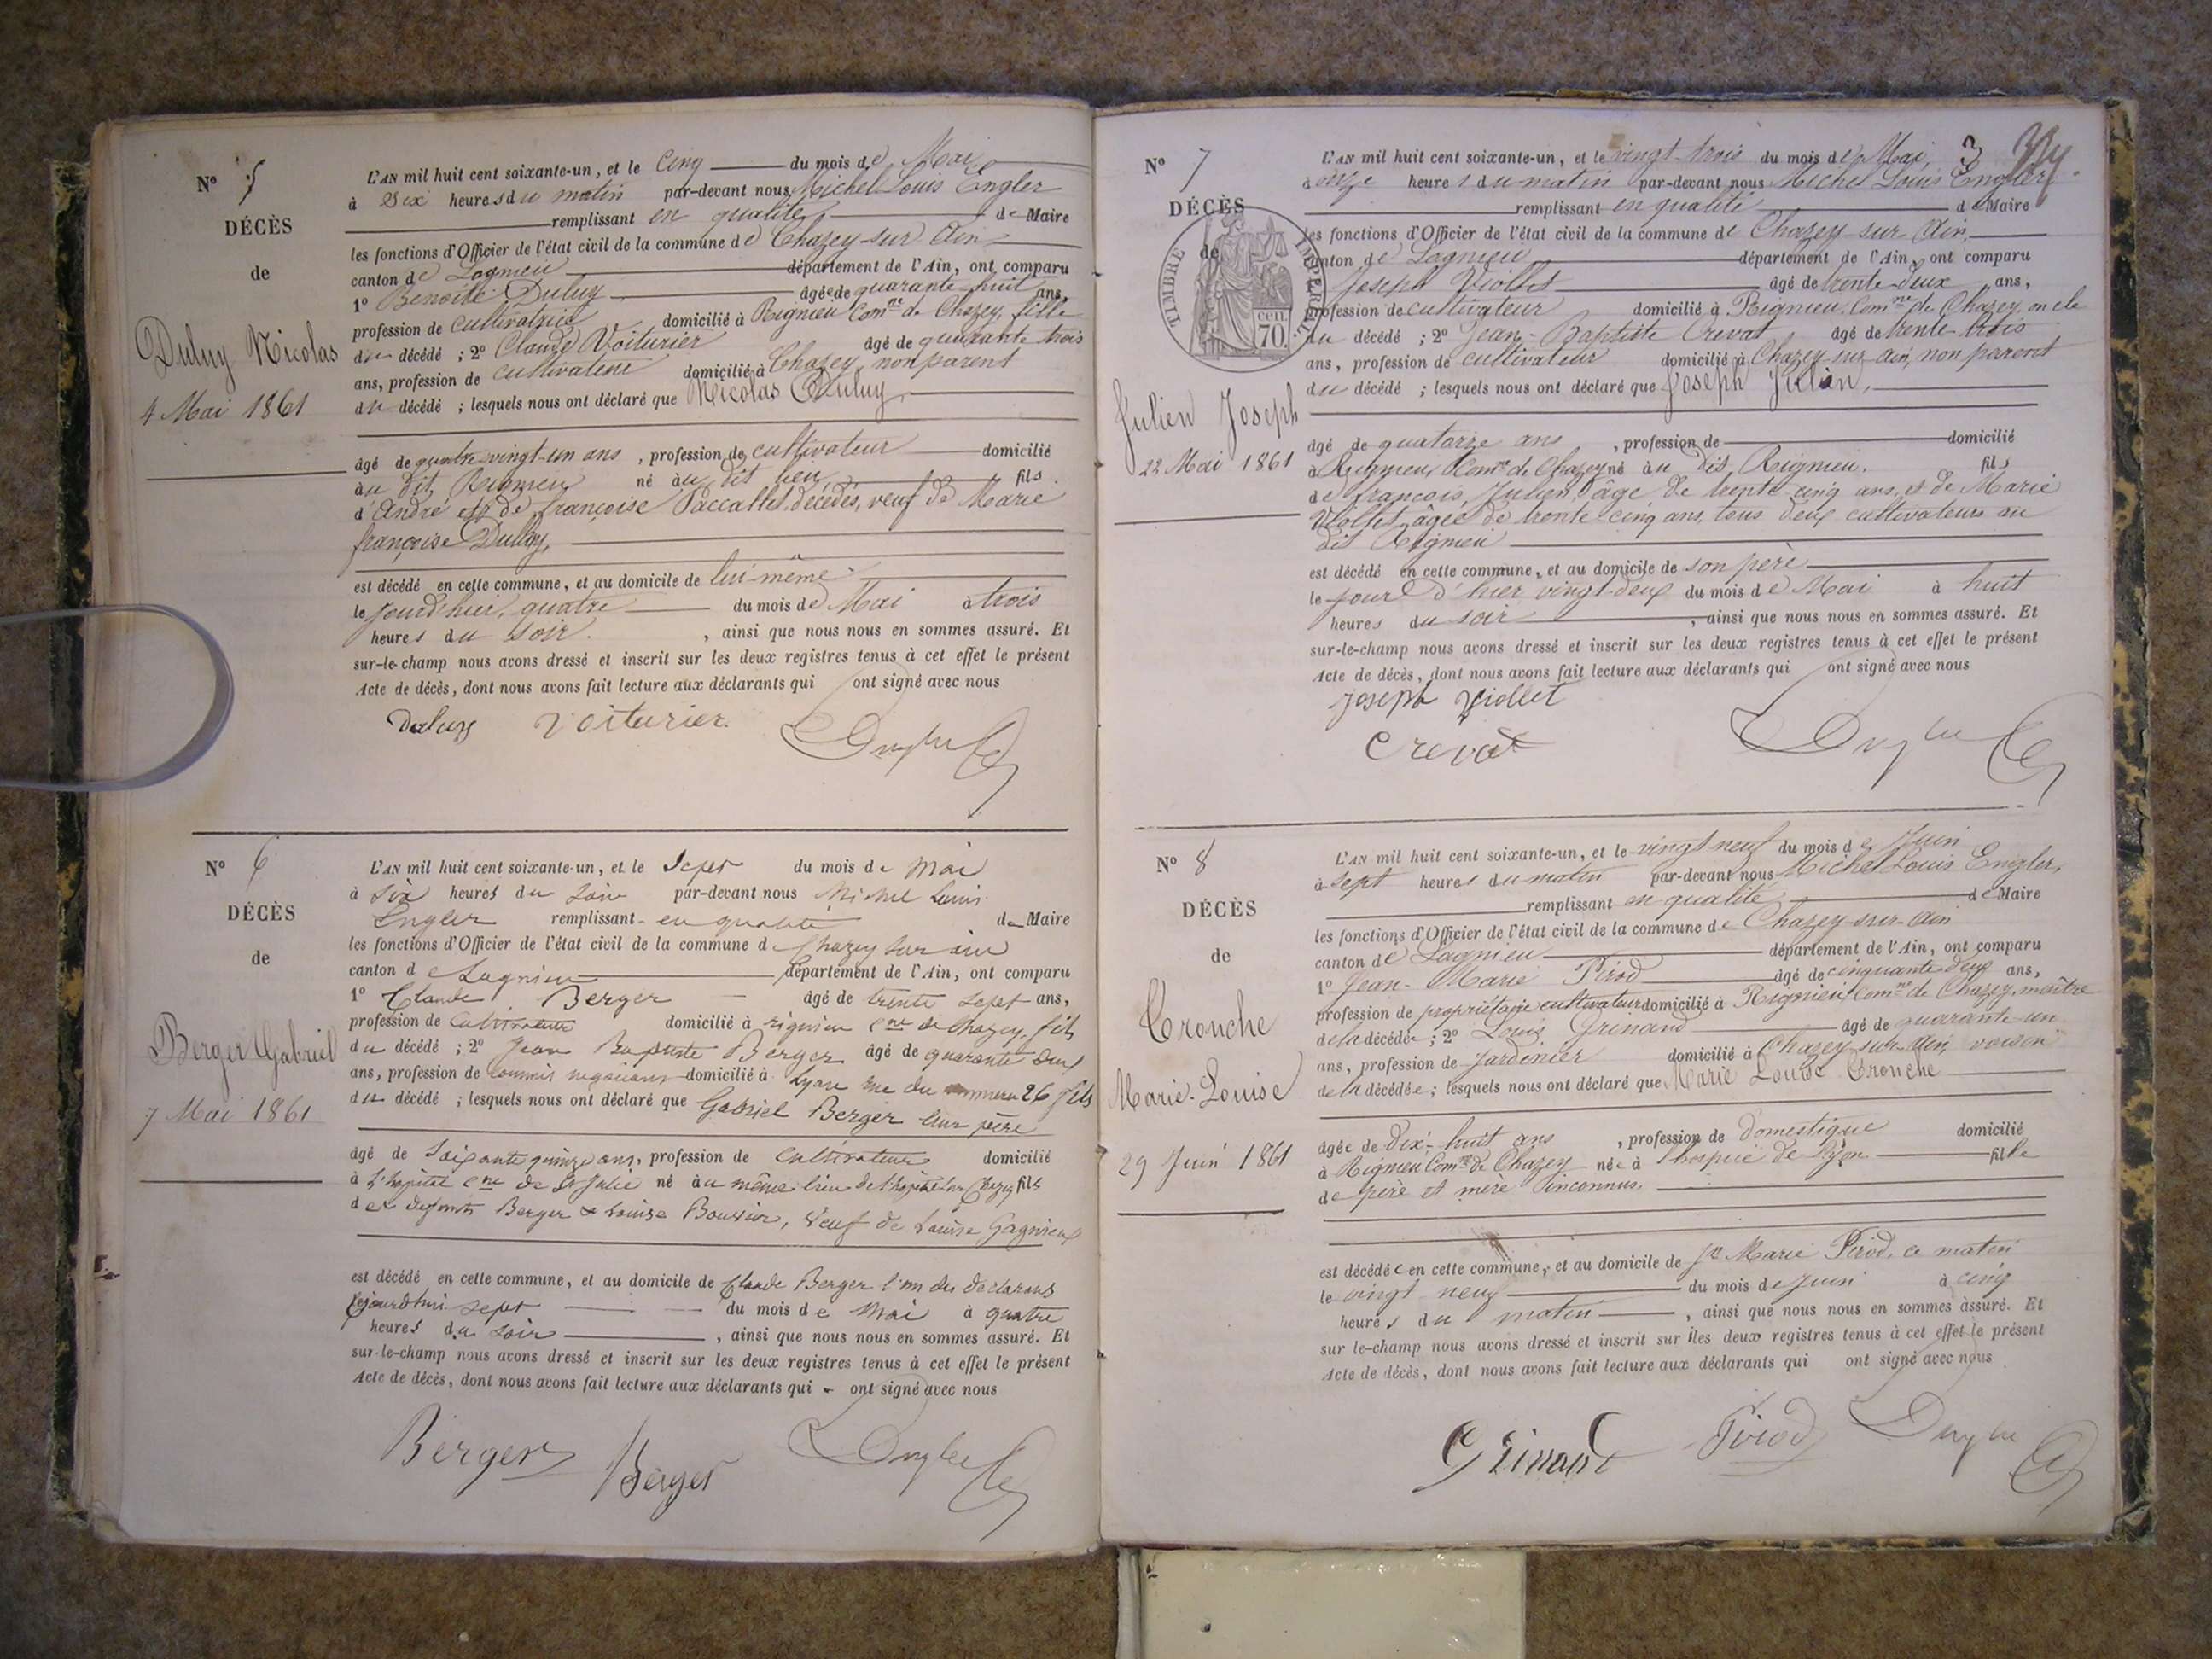 N° 5
DÉCÈS
de
Duluy Nicolas
4 Mai 1861
L'AN mil huit cent soixante-un, et le Cinq du mois de Mai
à Six heures du matin par-devant nous Michel Louis Engler
remplissant en qualité de Maire
les fonctions d'Officier de l'état civil de la commune de Chazey-sur-Ain
canton de Lagnieu département de l'Ain, ont comparu
1° Benoite Duluy âgée de quarante-huit ans,
profession de cultivatrice domicilié à Rignieu Comne de Chazey, fille
du décédé ; 2° Claude Voiturier âgé de quarante trois
ans, profession de cultivateur domicilié à Chazey, non parent
du décédé ; lesquels nous ont déclaré que Nicolas Duluy,
âgé de quatre-vingt-un ans, profession de cultivateur domicilié
au dit Rignieu né au dit lieu fils
d'André et de françoise Paccallet décédés, veuf de Marie
françoise Dulluy,
est décédé en cette commune, et au domicile de lui-même
le jourd'hier, quatre du mois de Mai à trois
heures du soir. , ainsi que nous nous en sommes assuré. Et
sur-le-champ nous avons dressé et inscrit sur les deux registres tenus à cet effet le présent
Acte de décès, dont nous avons fait lecture aux déclarants qui ont signé avec nous
duluy voiturier
N° 6
DÉCÈS
de
Berger Gabriel
7 Mai 1861
L'AN mil huit cent soixante-un, et le Sept du mois de Mai
à Six heures du Soir par-devant nous Michel Louis
Engler remplissant en qualité de Maire
les fonctions d'Officier de l'état civil de la commune de Chazey sur ain
canton de Lagnieu département de l'Ain, ont comparu
1° Claude Berger âgé de trente sept ans,
profession de Cultivateur domicilié à rignieu cne de Chazey, fils
du décédé ; 2° Jean Baptiste Berger âgé de quarante deux
ans, profession de commis negociant domicilié à Lyon rue du 26 fils
du décédé ; lesquels nous ont déclaré que Gabriel Berger leur père
âgé de Soixante quinze ans, profession de Cultivateur domicilié
à L'hopital cne de St Julie né au même lieu de l'hopital fils
des defunts Berger & Louise Bouvier, veuf de Louise Gagnieux
est décédé en cette commune, et au domicile de Claude Berger l'un des declarans
cejourd'hui sept du mois de Mai à quatre
heures du Soir , ainsi que nous nous en sommes assuré. Et
sur-le-champ nous avons dressé et inscrit sur les deux registres tenus à cet effet le présent
Acte de décès, dont nous avons fait lecture aux déclarants qui ont signé avec nous
Berger Berger
3
N° 7
DÉCÈS
de
TIMBRE IMPERIAL
70 CENT.
Julien Joseph
22 Mai 1861
L'AN mil huit cent soixante-un, et le vingt-trois du mois de Mai,
à onze heures du matin par-devant nous Michel Louis Engler
remplissant en qualité de Maire
les fonctions d'Officier de l'état civil de la commune de Chazey-sur-Ain,
canton de Lagnieu département de l'Ain, ont comparu
Joseph Viollet âgé de trente-deux ans,
profession de cultivateur domicilié à Rignieu Comne de Chazey, oncle
du décédé ; 2° Jean-Baptiste Crevat âgé de trente-trois
ans, profession de cultivateur domicilié à Chazey-sur-Ain, non parent
du décédé ; lesquels nous ont déclaré que Joseph Julien,
âgé de quatorze ans , profession de domicilié
à Rignieu, Comne de Chazey né au dit Rignieu. fils
de françois Julien, âgé de trente-cinq ans, et de Marie
Viollet âgée de trente-cinq ans, tous deux cultivateurs au
dit Rignieu
est décédé en cette commune, et au domicile de son père
le jour d'hier vingt-deux du mois de Mai à huit
heures du soir , ainsi que nous nous en sommes assuré. Et
sur-le-champ nous avons dressé et inscrit sur les deux registres tenus à cet effet le présent
Acte de décès, dont nous avons fait lecture aux déclarants qui ont signé avec nous
joseph viollet
Crevat
N° 8
DÉCÈS
de
Cronche
Marie-Louise
29 Juin 1861
L'AN mil huit cent soixante-un, et le vingt neuf du mois de Juin
à sept heures du matin par-devant nous Michel Louis Engler,
remplissant en qualité de Maire
les fonctions d'Officier de l'état civil de la commune de Chazey-sur-Ain
canton de Lagnieu département de l'Ain, ont comparu
1° Jean-Marie Pirod âgé de cinquante deux ans,
profession de propriétaire cultivateur domicilié à Rignieu Comne de Chazey, maître
de la décédée ; 2° Louis Grinand âgé de quarante-un
ans, profession de Jardinier domicilié à Chazey-sur-Ain, voisin
de la décédée ; lesquels nous ont déclaré que Marie Louise Cronche
âgée de Dix-huit ans , profession de domestique domicilié
à Rignieu Comne de Chazey née à l'hospice de Lyon fille
de père et mère inconnus.
est décédée en cette commune, et au domicile de Jn Marie Pirod, ce matin
le vingt neuf du mois de Juin à cinq
heures du matin , ainsi que nous nous en sommes assuré. Et
sur le-champ nous avons dressé et inscrit sur les deux registres tenus à cet effet le présent
Acte de décès, dont nous avons fait lecture aux déclarants qui ont signé avec nous
Grinand Pirod